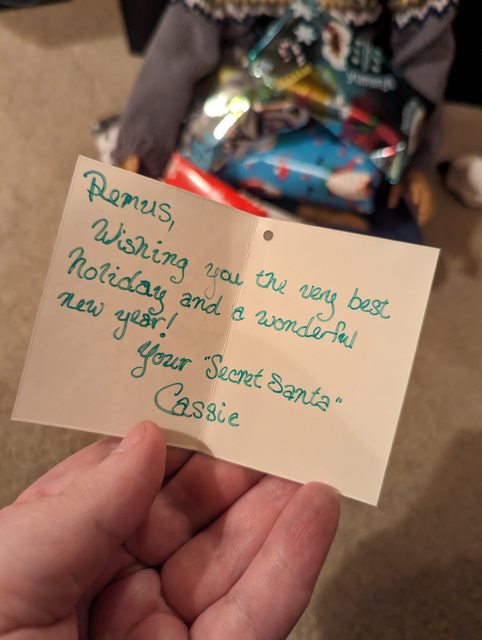 Remus,
Wishing you the very best
holiday and a wonderful
new year!
Your "Secret Santa"
Cassie